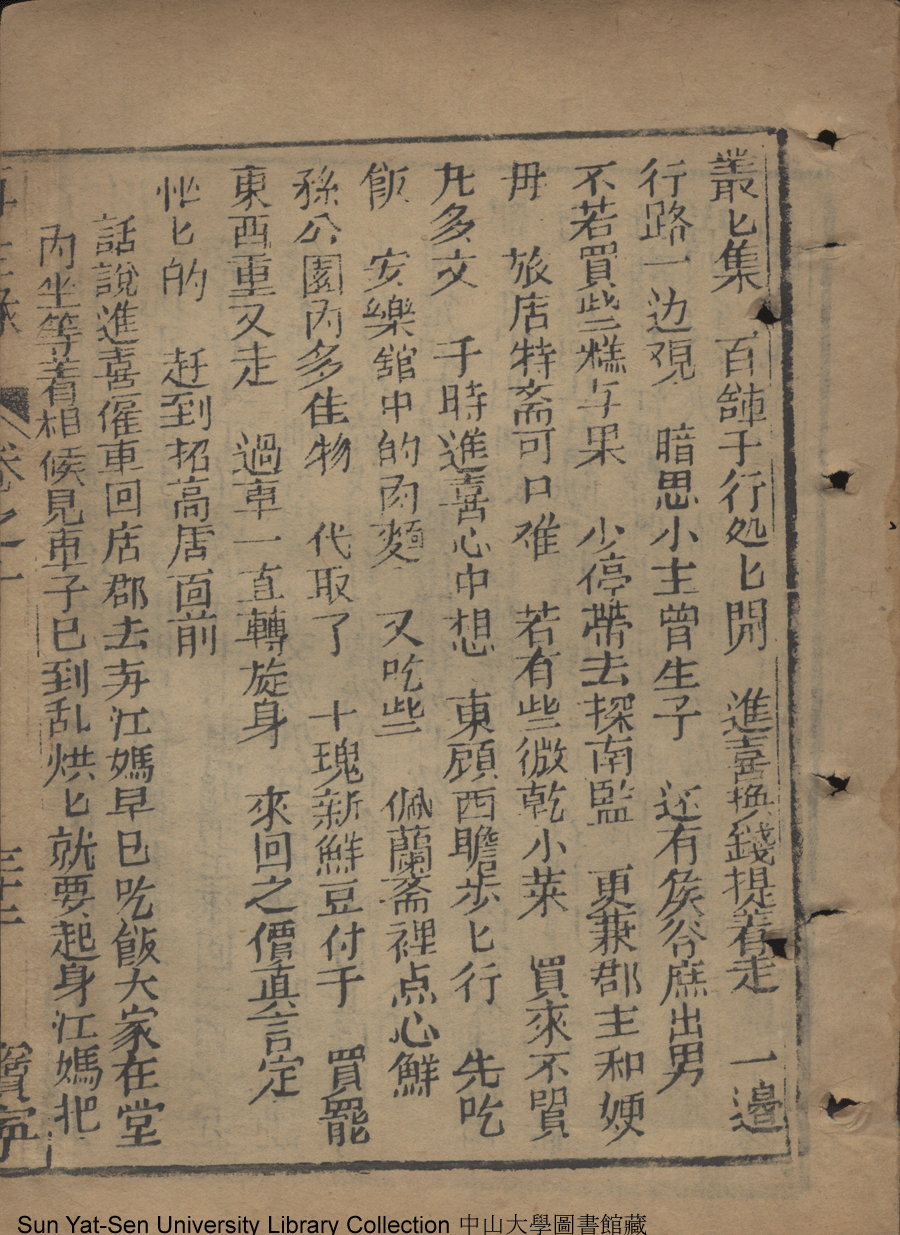 叢匕集　百舖于行処匕閙　進喜換錢提着走　一邊
行路一边观　暗思小主曾生子　还有侯爷庶出男
不若買些糕与果　少停帶去探南監　更兼郡主和
毋　旅店特斋可口难　若有些微乾小菜　買來不
九多文　于時進喜心中想　東顧西瞻步匕行　先吃
飯　安樂舘中的肉麵　又吃些　佩蘭斋裡点心鮮
孫公園内多佳物　代取了　十塊新鮮豆付于　買罷
東西重又走　過車一直轉旋身　來回之價真言定
忙匕的　赶到招高店面前
話說進喜僱車回店郡去寿江媽早已吃飯大家在堂
内坐等着相候見車子已到乱烘匕就要起身江媽把
卷之　三十　寳寧
Sun Yat-Sen University Library Collection 中山大學圖書館藏